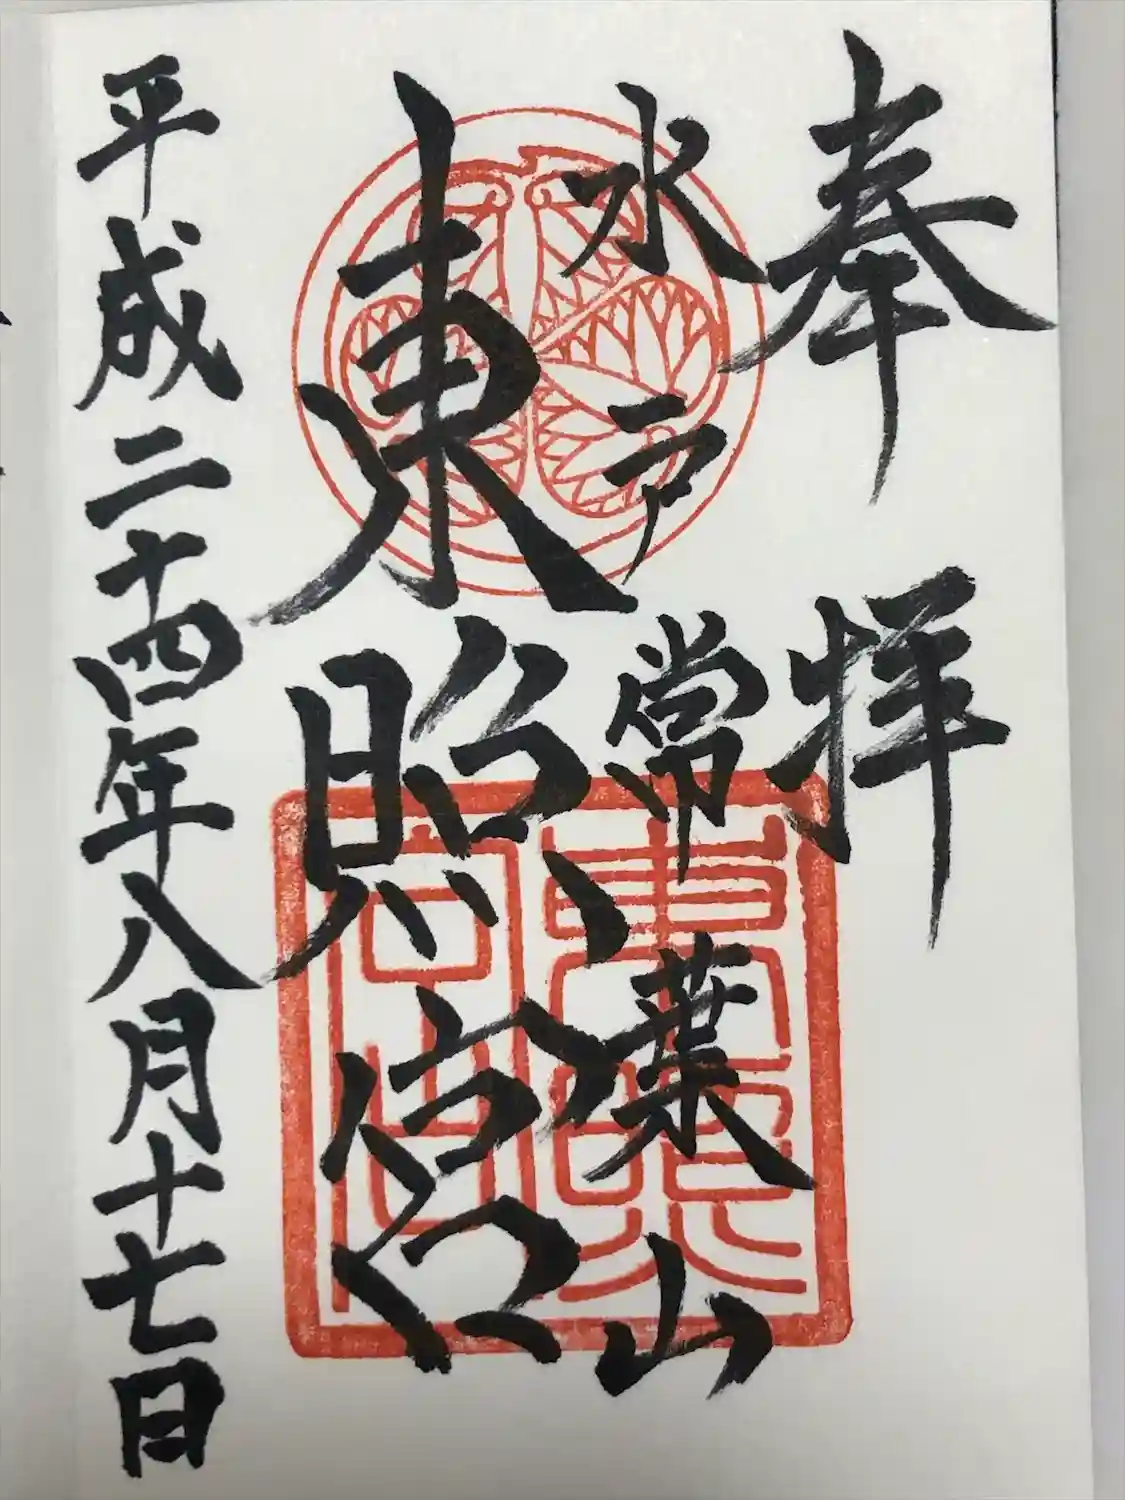 奉拝
水戸常葉山
東照宮
東照宮
平成二十四年八月十七日